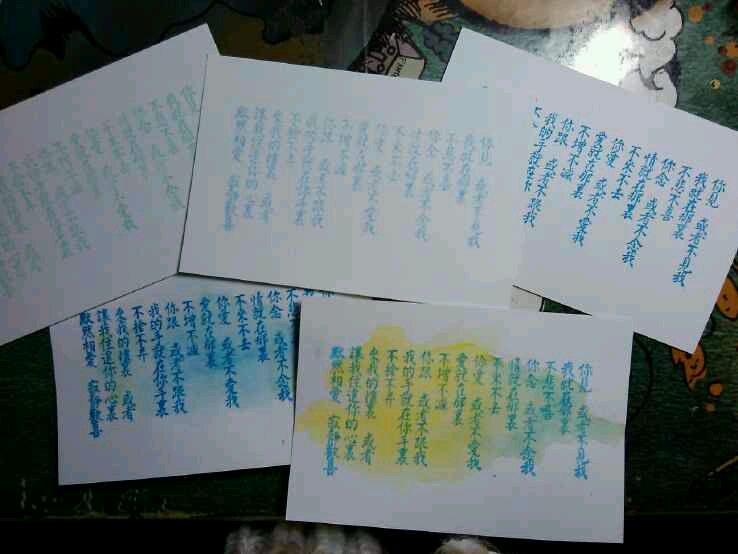 你見 或者不見我
我就在那裏
不悲不喜
你念 或者不念我
情就在那裏
不來不去
你愛 或者不愛我
愛就在那裏
不增不減
你跟 或者不跟我
我的手就在你手裏
不捨不棄
來我的懷裏 或者
讓我住進你的心裏
默然相愛 寂靜歡喜
你見 或者不見我
我就在那裏
不悲不喜
你念 或者不念我
情就在那裏
不來不去
你愛 或者不愛我
愛就在那裏
不增不減
你跟 或者不跟我
我的手就在
你念 或者不念我
情就在那裏
不來不去
你愛 或者不愛我
愛就在那裏
不增不減
你跟 或者不跟我
我的手就在你手裏
不捨不棄
來我的懷裏 或者
讓我住進你的心裏
默然相愛 寂靜歡喜
你見 或者不見我
我就在那裏
不悲不喜
你念 或者不念我
情就在那裏
不來不去
你愛 或者不愛我
愛就在那裏
不增不減
你跟 或者不跟我
我的手就在你手裏
不捨不棄
來我的懷裏 或者
讓我住進你的心裏
默然相愛 寂靜歡喜